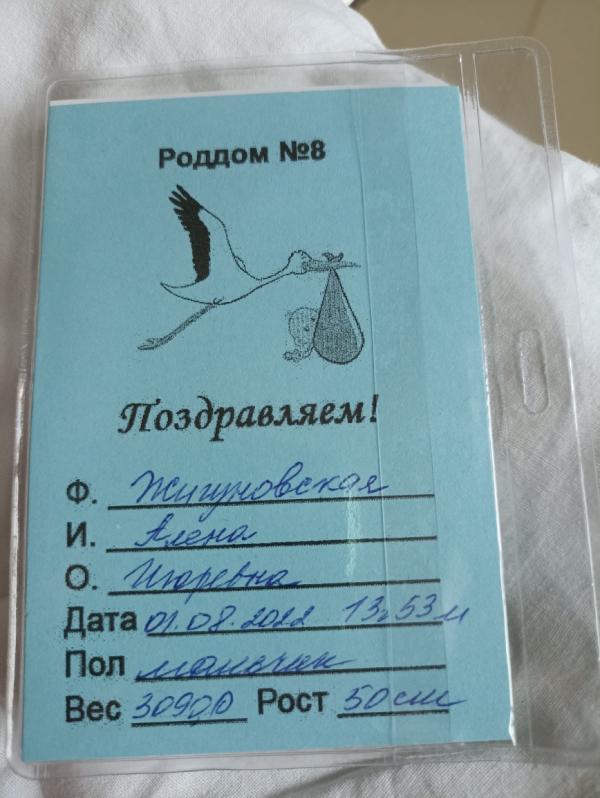 Роддом №8
Поздравляем!
Ф. Жигуновская
И. Алена
О. Игоревна
Дата 01.08.2022 13ч 53м
Пол мальчик
Вес 3090,0 Рост 50см